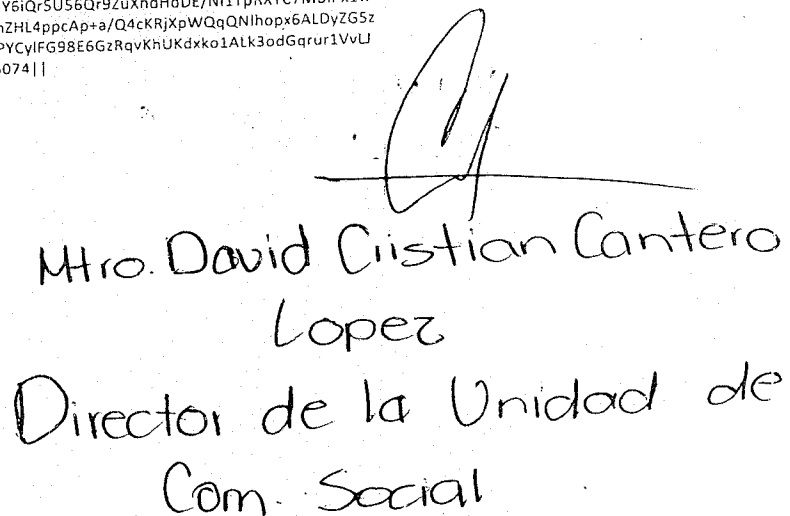 nZHL4ppcAp+a/Q4cKRjXpWQqQNIhopx6ALDyZG5z
PYCylFG98E6GzRqvKhUKdxko1ALk3odGqrur1VvLJ
6074||
Mtro. David Cristian Cantero
Lopez
Director de la Unidad de
Com. Social